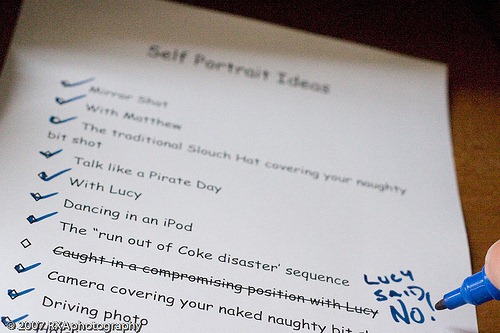 Self Portrait Ideas
Mirror Shot
With Matthew
The traditional Slouch Hat covering your naughty
bit shot
Talk like a Pirate Day
With Lucy
Dancing in an iPod
The "run out of Coke disaster' sequence
Caught in a compromising position with Lucy
LUCY
SAID
NO!
Camera covering your naked naughty bit
Driving photo
© 2007 RXAphotography